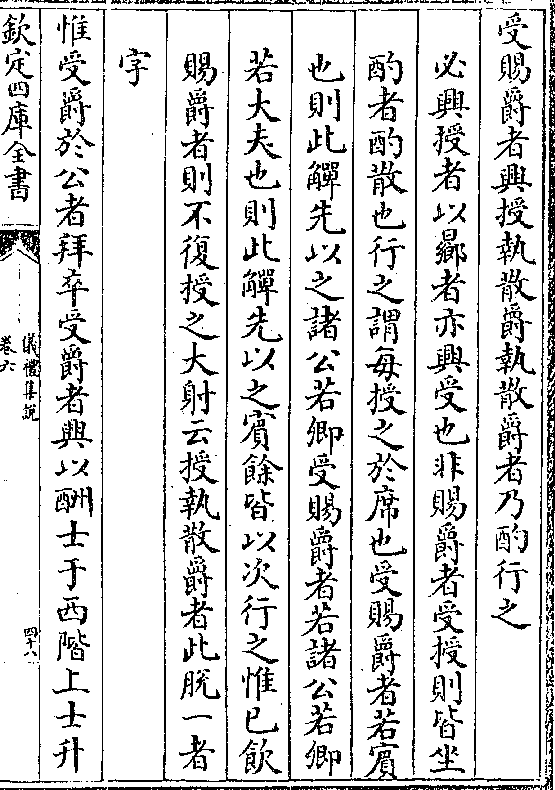 受賜爵者興授執散爵執散爵者乃酌行之
必興授者以曏者亦興受也非賜爵者受授則皆坐
酌者酌散也行之謂每授之於席也受賜爵者若賓
也則此觶先以之諸公若卿受賜爵者若諸公若卿
若大夫也則此觶先以之賓餘皆以次行之惟已飲
賜爵者則不復授之大射云授執散爵者此脫一者
字
惟受爵於公者拜卒受爵者興以酬士于西階上士升
欽定四庫全書
儀禮集說
卷六
四十八